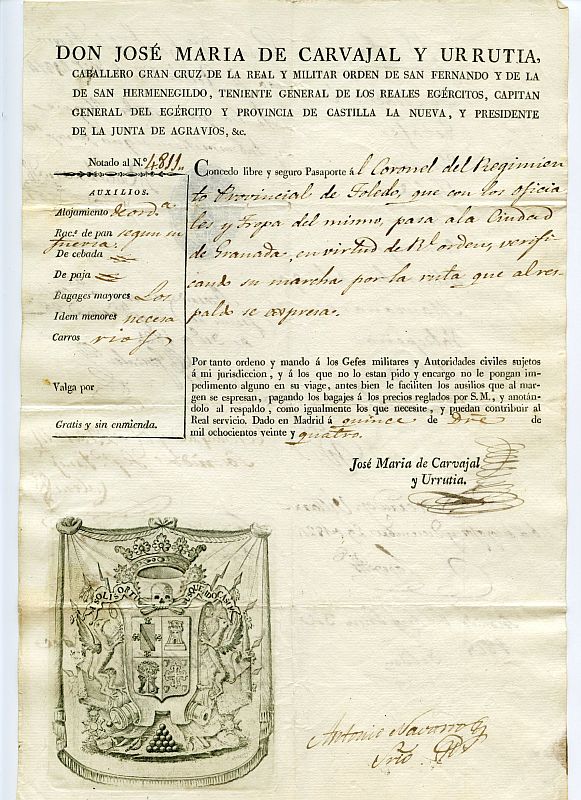 DON JOSÉ MARIA DE CARVAJAL Y URRUTIA,
CABALLERO GRAN CRUZ DE LA REAL Y MILITAR ORDEN DE SAN FERNANDO Y DE LA
DE SAN HERMENEGILDO, TENIENTE GENERAL DE LOS REALES EGÉRCITOS, CAPITAN
GENERAL DEL EGÉRCITO Y PROVINCIA DE CASTILLA LA NUEVA, Y PRESIDENTE
DE LA JUNTA DE AGRAVIOS, &c.
Notado al N.º 4811
AUXILIOS.
Alojamiento
Rac.s de pan segun su
fuerza.
De cebada
De paja
Bagages mayores Los
Idem menores necesa
Carros rios
Valga por
Gratis y sin enmienda.
Concedo libre y seguro Pasaporte al Coronel del Regimien
to Provincial de Toledo, que con los oficia
les y Tropa del mismo, pasa a la Ciudad
de Granada, en virtud de Rl orden, verifi
cando su marcha por la ruta que al res-
paldo se expresa.
Por tanto ordeno y mando á los Gefes militares y Autoridades civiles sujetos
á mi jurisdiccion, y á los que no lo estan pido y encargo no le pongan im-
pedimento alguno en su viage, antes bien le faciliten los ausilios que al mar-
gen se espresan, pagando los bagajes á los precios reglados por S.M., y anotán-
dolo al respaldo, como igualmente los que necesite, y puedan contribuir al
Real servicio. Dado en Madrid á quince de Dre de
mil ochocientos veinte y quatro.
José Maria de Carvajal
y Urrutia.
Antonio Navarro
Srio